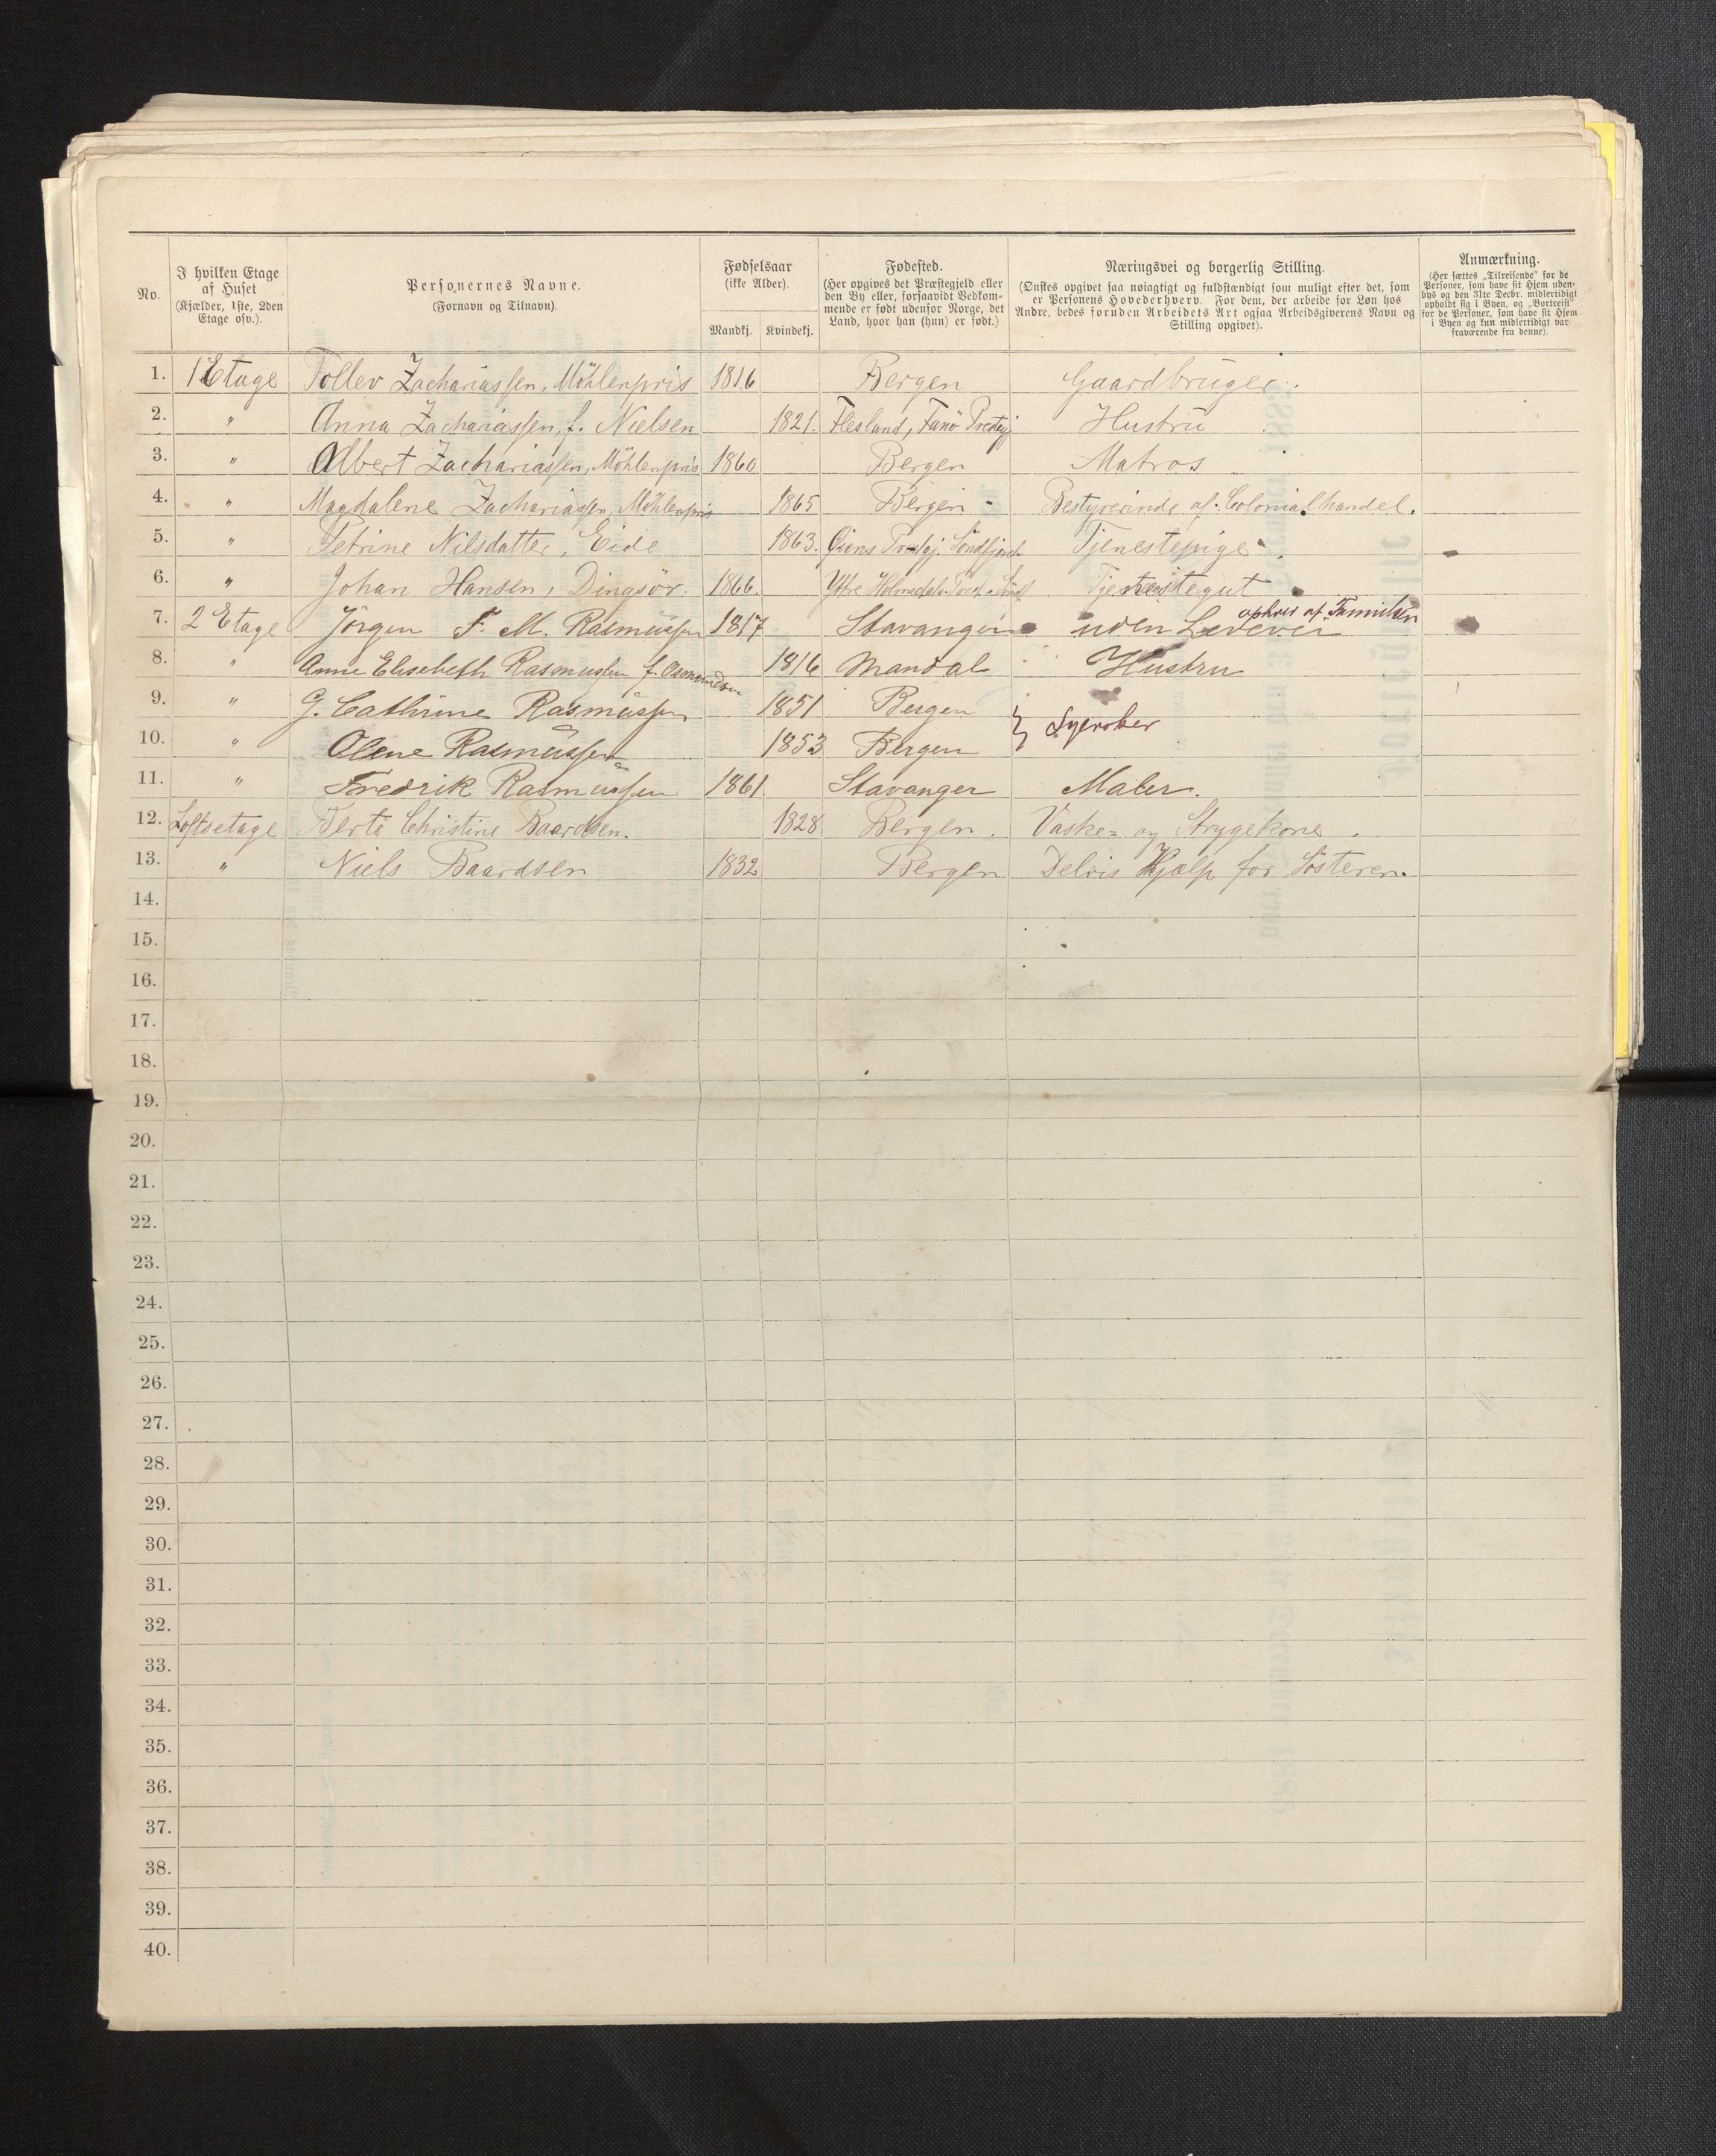 No.
I hvilken Etage af Huset (Kjælder, 1ste, 2den Etage osv.).
Personernes Navne. (Fornavn og Tilnavn).
Fødselsaar (ikke Alder).
Mandkj. Kvindekj.
Fødested. (Her opgives det Præstegjeld eller den By eller, forsaavidt Vedkommende er født udenfor Norge, det Land, hvor han (hun) er født.)
Næringsvei og borgerlig Stilling. (Ønskes opgivet saa nøiagtigt og fuldstændigt som muligt efter det, som er Personens Hovederhverv. For dem, der arbeide for Løn hos Andre, bedes foruden Arbeidets Art ogsaa Arbeidsgiverens Navn og Stilling opgivet).
Anmærkning. (Her sættes „Tilreisende" for de Personer, som have sit Hjem udenbys og den 31te Decbr. midlertidigt opholdt sig i Byen, og „Bortreist" for de Personer, som have sit Hjem i Byen og kun midlertidigt var fraværende fra denne).
1. 1 Etage Tollev Zachariassen, Möhlenpris 1816 Bergen Gaardbruger.
2. " Anna Zachariassen, f. Nielsen 1821. Flesland, Fanö Prestgj Hustru
3. " Albert Zachariassen, Möhlenpris 1860 Bergen Matros
4. " Magdalene Zachariassen, Möhlenpris 1865 Bergen Bestyrerinde af Colonialhandel.
5. " Petrine Nilsdatter, Eide 1863. Prstgj. Söndfjord Tjenestepige
6. " Johan Hansen, Dingsör. 1866. Ytre Holmedals Tjenestegut
7. 2 Etage Jörgen F. M. Rasmussen 1817 Stavanger uden Levevei ophold af Familien
8. " Anne Elisebeth Rasmussen f. Osmundsen 1816 Mandal Hustru
9. " G. Cathrine Rasmussen 1851 Bergen } Syersker
10. " Olene Rasmussen 1853 Bergen
11. " Fredrik Rasmussen 1861. Stavanger Maler.
12. Loftsetage Berte Christine Baardsen. 1828 Bergen. Vaske- og Strygekone.
13. " Niels Baardsen 1832 Bergen Delvis Hjælp for Søsteren.
14.
15.
16.
17.
18.
19.
20.
21.
22.
23.
24.
25.
26.
27.
28.
29.
30.
31.
32.
33.
34.
35.
36.
37.
38.
39.
40.